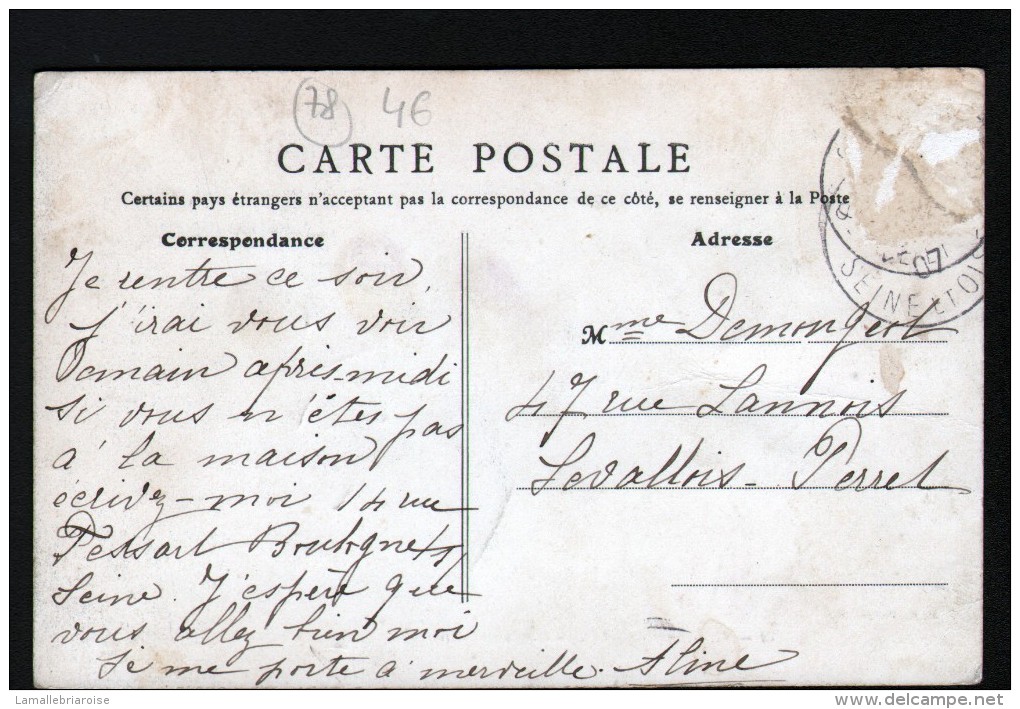 78 46
CARTE POSTALE
Certains pays étrangers n'acceptant pas la correspondance de ce côté, se renseigner à la Poste
Correspondance
Je rentre ce soir,
j'irai vous voir
Demain après-midi
si vous n'êtes pas
à la maison
écrivez-moi 14 rue
Pessart Boulogne s/
Seine. J'espère que
vous allez bien moi
je me porte à merveille. Aline
Adresse
Mme Demongeot
47 rue Lannois
Levallois-Perret
07
SEINE-ET-OIS
Lamallebriaroise
delcampe.net